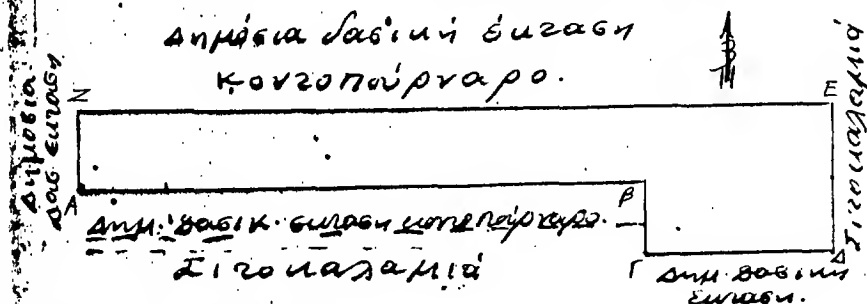 Δημόσια δασική έκταση
Κοντοπούρναρο.
Δημόσια
δασ εκταση
Ζ
Ε
Σιτοκαλαμιά
Α
Β
Δημ. δασικ. εκταση κοντοπούρναρο.
Σιτοκαλαμιά
Γ
Δ
Δημ δασική
έκταση.